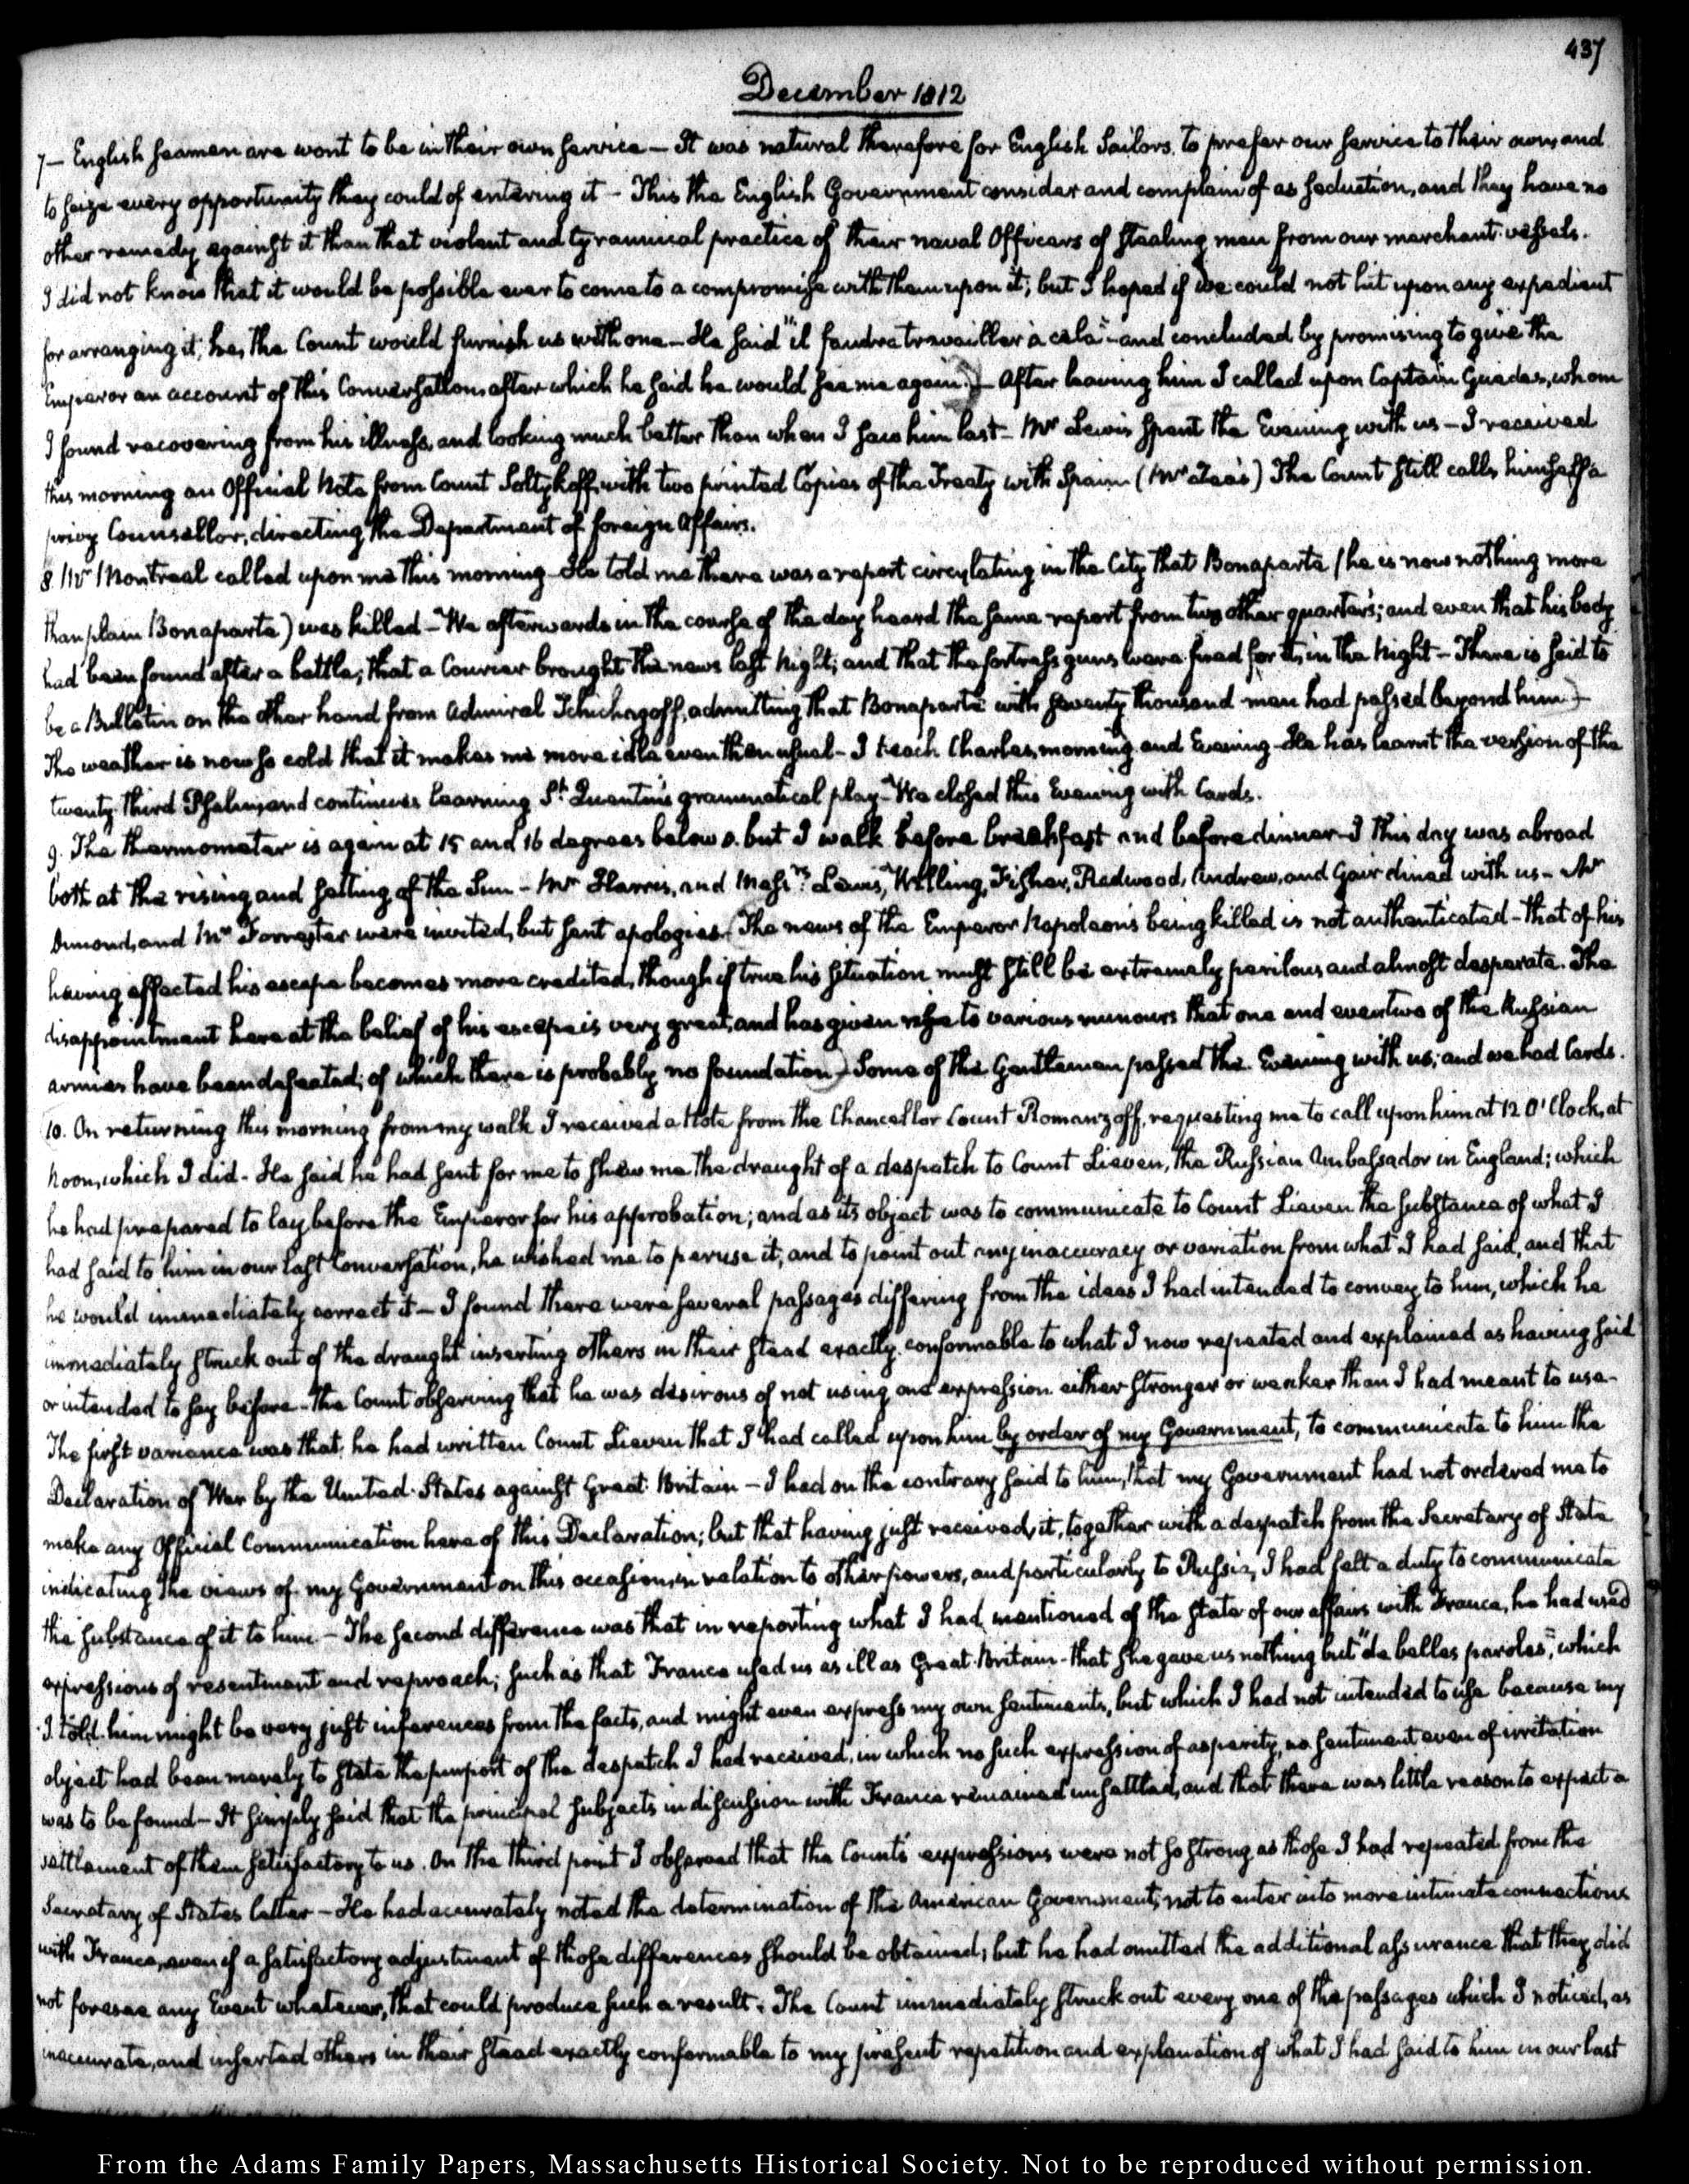 437
December 1812
7— English seamen are wont to be in their own service — It was natural therefore for English Sailors, to prefer our service to their own, and
to seize every opportunity they could of entering it — This the English Government consider and complain of as seduction, and they have no
other remedy against it than that violent and tyrannical practice of their naval Officers of stealing men from our merchant vessels.
I did not know that it would be possible ever to come to a compromise with them upon it; but I hoped if we could not hit upon any expedient
for arranging it, he, the Count would furnish us with one — He said "il faudra travailler à cela" — and concluded by promising to give the
Emperor an account of this Conversation, after which he said he would see me again.) — After leaving him I called upon Captain Guedes, whom
I found recovering from his illness, and looking much better than when I saw him last — Mr Lewis spent the Evening with us — I received
this morning an Official Note from Count Soltykoff, with two printed Copies of the Treaty with Spain (Mr Zea's) The Count still calls himself a
privy Counsellor, directing the Department of foreign Affairs.
8 Mr Montreal called upon me this morning — He told me there was a report circulating in the City that Bonaparte (he is now nothing more
than plain Bonaparte) was killed — We afterwards in the course of the day heard the same report from two other quarters; and even that his body
had been found after a battle; that a Courier brought the news last Night; and that the fortress guns were fired for it, in the Night — There is said to
be a Bulletin on the other hand from Admiral Tchichagoff, admitting that Bonaparte with seventy thousand men had passed beyond him) —
The weather is now so cold that it makes me more idle even than usual — I teach Charles, morning and Evening — He has learnt the version of the
twenty-third Psalm, and continues learning St. Quentin's grammatical play — We closed this Evening with Cards.
9. The thermometer is again at 15 and 16 degrees below 0. but I walk before breakfast and before dinner — I this day was abroad
both at the rising and setting of the Sun — Mr Harris, and Messrs. Lewis, Willing, Fisher, Redwood, Andrew, and Gair dined with us — Mr
Dimond, and Mr Forrester were invited, but sent apologies. (The news of the Emperor Napoleon's being killed is not authenticated — that of his
having effected his escape becomes more credited, though if true his situation must still be extremely perilous and almost desperate. The
disappointment here at the belief of his escape is very great, and has given rise to various rumours that one and even two of the Russian
armies have been defeated; of which there is probably no foundation) — Some of the Gentlemen passed the Evening with us; and we had Cards.
10. On returning this morning from my walk I received a Note from the Chancellor Count Romanzoff, requesting me to call upon him at 12 O'Clock, at
Noon, which I did — He said he had sent for me to shew me the draught of a despatch to Count Lieven, the Russian Ambassador in England; which
he had prepared to lay before the Emperor for his approbation; and as its object was to communicate to Count Lieven the substance of what I
had said to him in our last Conversation, he wished me to peruse it, and to point out any inaccuracy or variation from what I had said, and that
he would immediately correct it — I found there were several passages differing from the ideas I had intended to convey to him, which he
immediately struck out of the draught inserting others in their stead exactly conformable to what I now repeated and explained as having said
or intended to say before — the Count observing that he was desirous of not using one expression either stronger or weaker than I had meant to use —
The first variance was that he had written Count Lieven that I had called upon him by order of my Government, to communicate to him the
Declaration of War by the United States against Great Britain — I had on the contrary said to him, that my Government had not ordered me to
make any Official Communication here of this Declaration; but that having just received, it, together with a despatch from the Secretary of State
indicating the views of my Government on this occasion, in relation to other powers, and particularly to Russia, I had felt a duty to communicate
the substance of it to him — The second difference was that in reporting what I had mentioned of the state of our affairs with France, he had used
expressions of resentment and reproach; such as that France used us as ill as Great Britain — that she gave us nothing but "de belles paroles", which
I told him might be very just inferences from the facts, and might even express my own sentiments, but which I had not intended to use because my
object had been merely to state the purport of the despatch I had received, in which no such expression of asperity, no sentiment even of irritation
was to be found — It simply said that the principal subjects in discussion with France remained unsettled, and that there was little reason to expect a
settlement of them satisfactory to us. On the third point I observed that the Count's expressions were not so strong as those I had repeated from the
Secretary of State's letter — He had accurately noted the determination of the American Government, not to enter into more intimate connections
with France, even if a satisfactory adjustment of those differences should be obtained; but he had omitted the additional assurance that they did
not foresee any Event whatever, that could produce such a result. The Count immediately struck out every one of the passages which I noticed, as
inaccurate, and inserted others in their stead exactly conformable to my present repetition and explanation of what I had said to him in our last
From the Adams Family Papers, Massachusetts Historical Society. Not to be reproduced without permission.